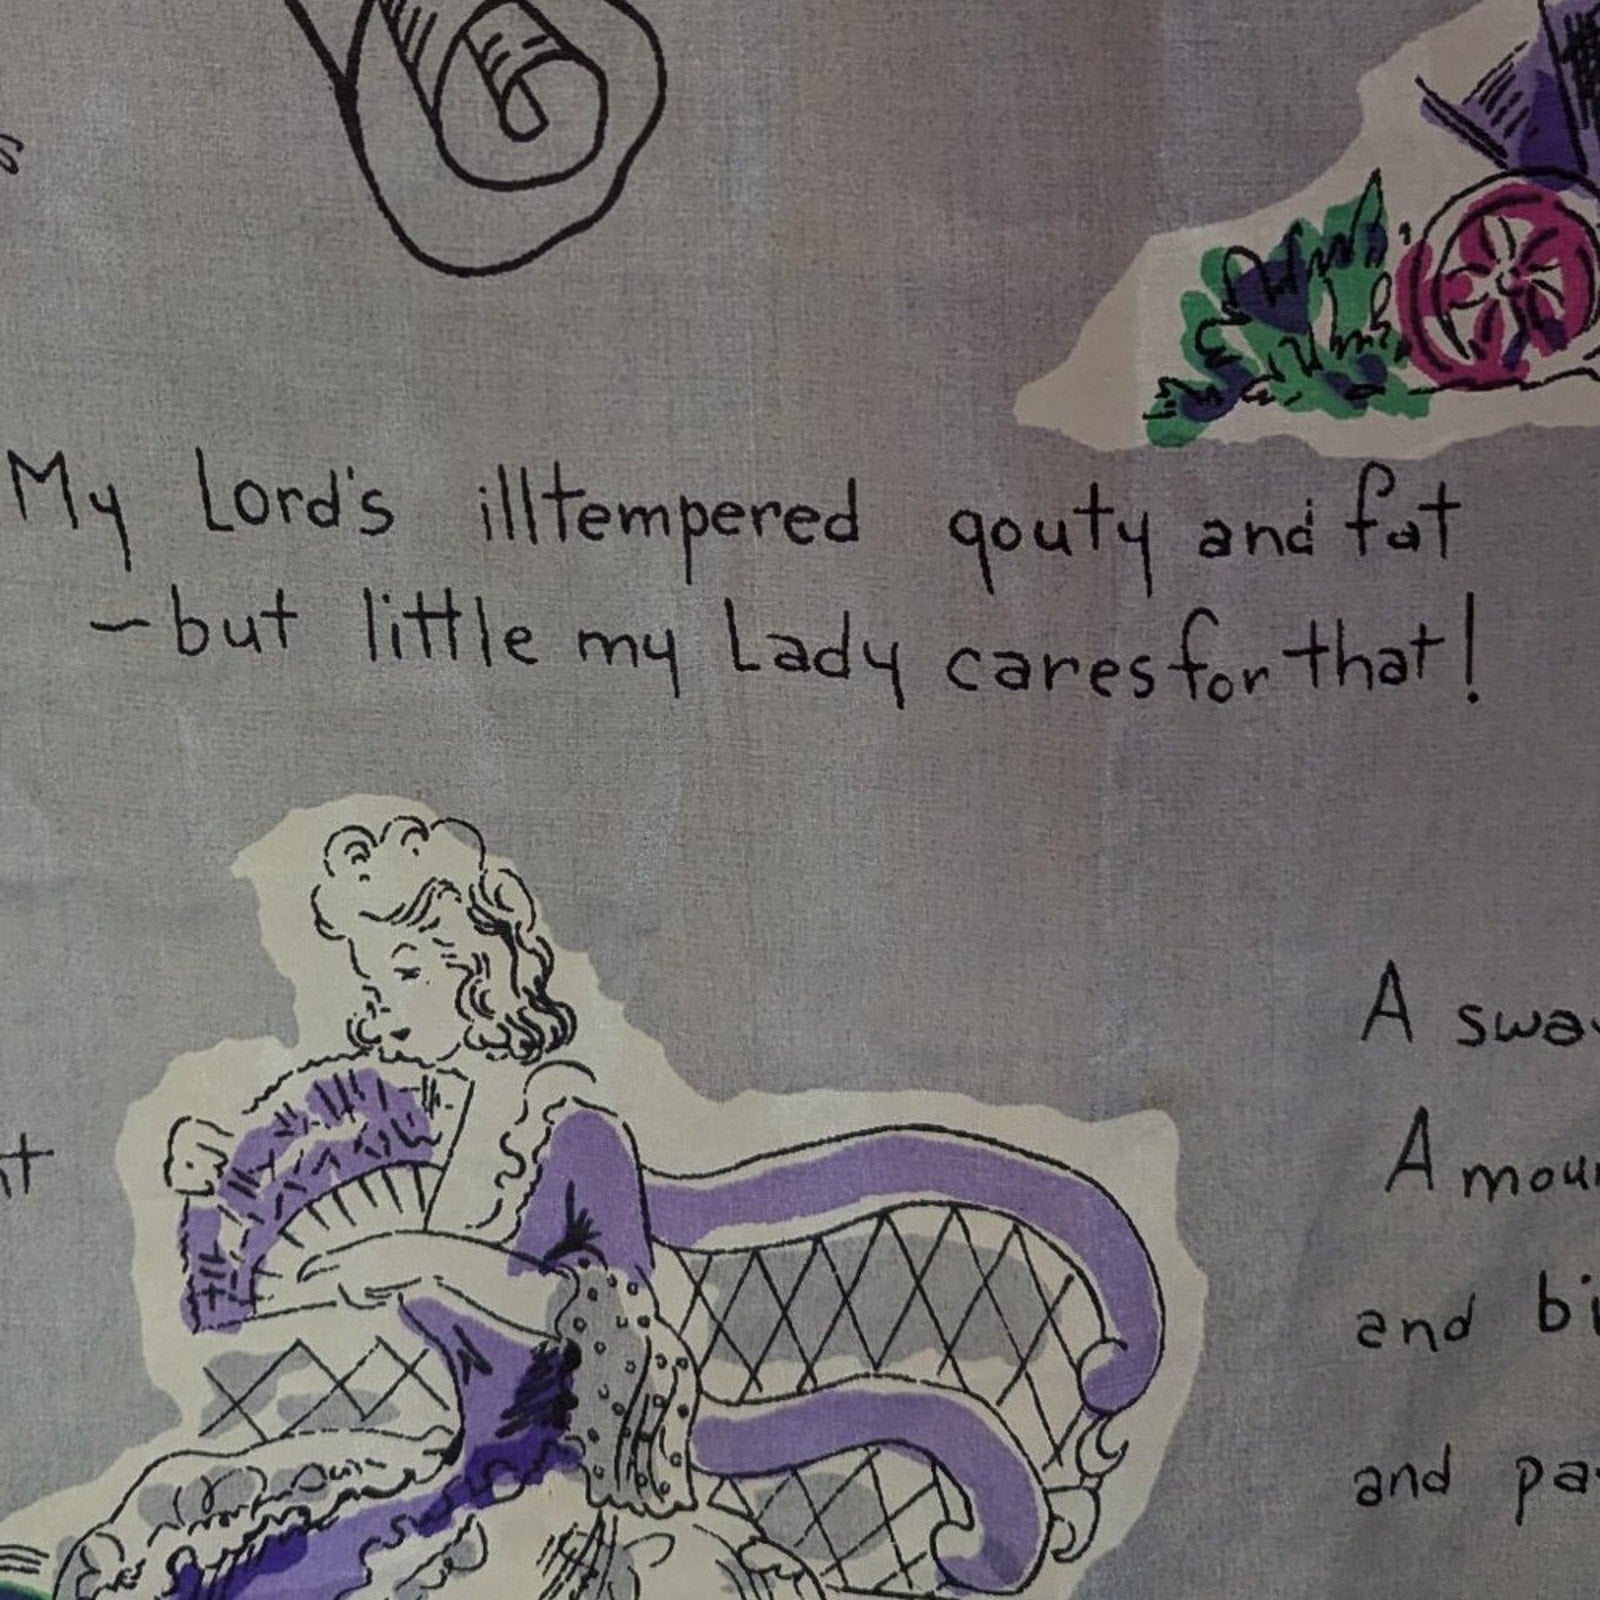 My Lord's illtempered gouty and fat
—but little my Lady cares for that!
A
A
and
and